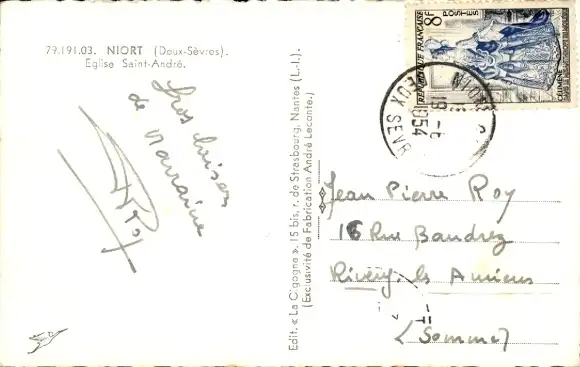 79.191.03. NIORT (Deux-Sèvres).
Eglise Saint-André.
Gros baisers
de Marraine
Roy
Edit. « La Cigogne ». 15 bis, r. de Strasbourg, Nantes (L.-I.).
(Exclusivité de Fabrication André Leconte.)
8F
POSTES
REPUBLIQUE FRANÇAISE
NIORT
18 -6
1954
DEUX SEVR
Jean Pierre Roy
16 Rue Baudrez
Rivery les Amiens
(Somme)